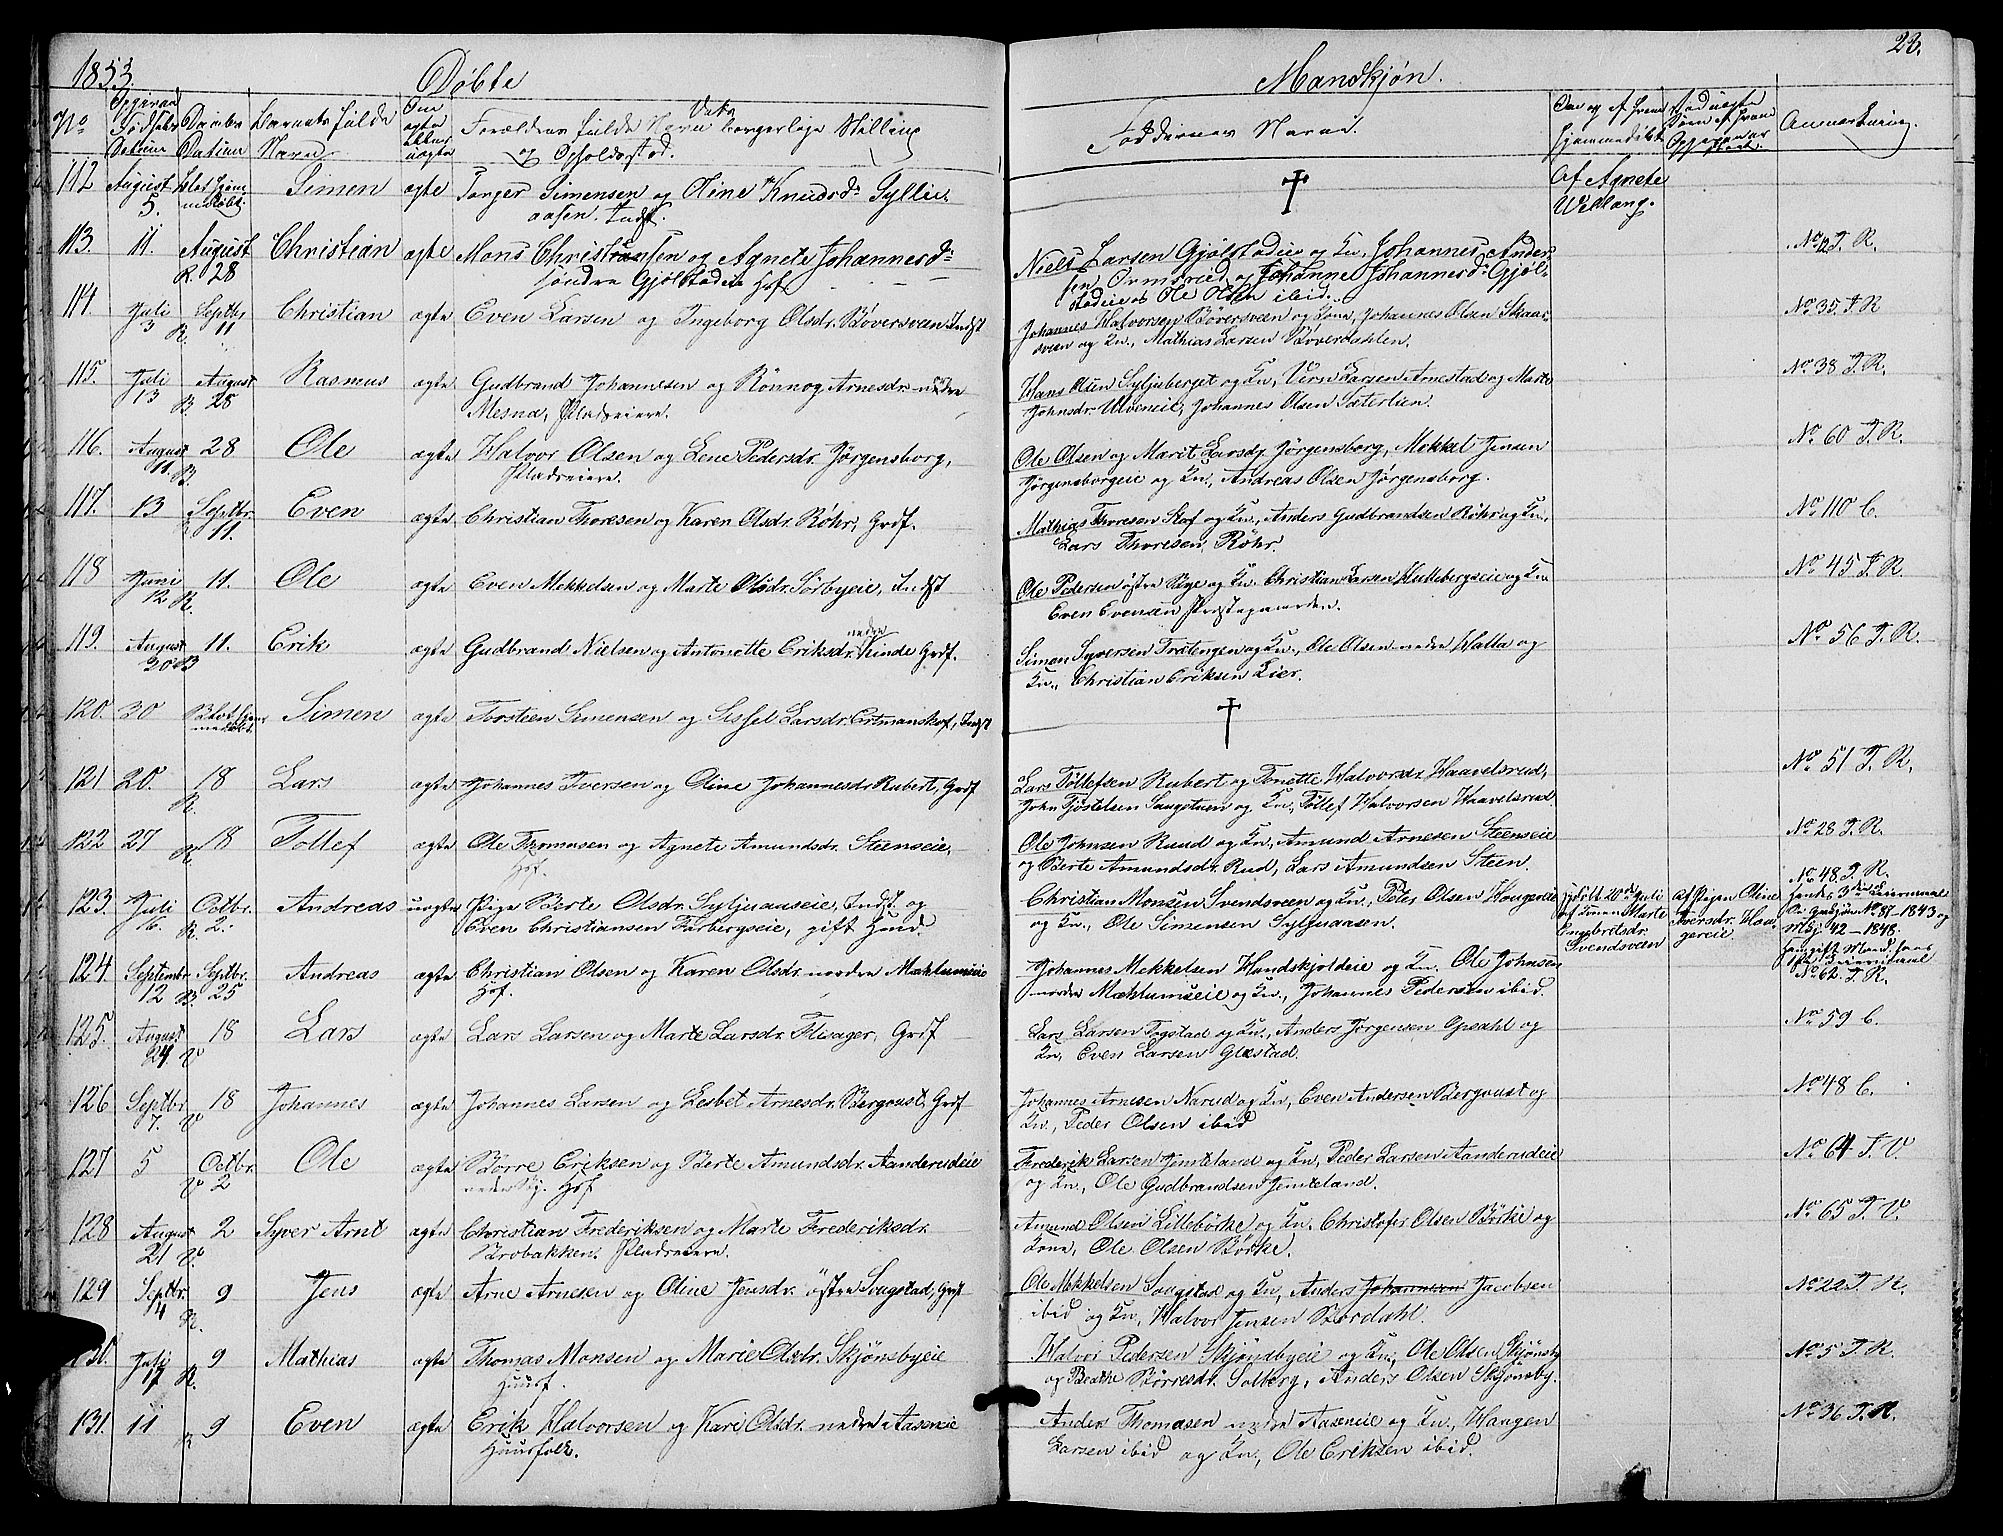 1853.
Døbte
Mandkjøn.
23.
No
Barnets fulde Navn
Forældres fulde Navn borgerlige Stilling og Opholdssted.
Faddernes Navne.
Anmærkning.
112 August 5. Blot hjemmedøbt. Simen ægte Torger Simensen og Oline Knudsdr.
aasen. Indst. † Af Agnete
113. 11. August Christian ægte Mons Christiansen og Agnete Johannesdr.
R. 28 søndre Gjølstadeie Hsf.
Niels Larsen Gjølstadeie og Kn, Johannes Ander-
sen og Johanne Johannesdr. Gjøl-
stadeie og Ole Olsen ibid.
114. Juli 3 R. Septbr 11 Christian ægte Even Larsen og Ingeborg Olsdr. Bøversveen Indst
Johannes Halvorsen Bøversveen og Kone, Johannes Olsen
sveen og Kn., Mathias Larsen Bøverdahlen.
No 35. T. R
115. Juli 13 R. August 28 Rasmus ægte Gudbrand Johannesen og Rønnog Arnesdr. nedre
Mesna, Pladseiere.
Hans Olsen Syljuberget og Kn, Larsen Arnestad og Marte
Johnsdr. Ulveneie, Johannes Olsen Sæterlien.
No 38 T. R.
116. August 11 B. 28 Ole ægte Halvor Olsen og Lene Pedersdr. Jørgensborg,
Pladseiere.
Ole Olsen og Marit Larsdr. Jørgensborg, Mekkel Jensen
Jørgensborgeie og Kn., Andreas Olsen Jørgensborg.
No 60 T. R.
117. 13 Septbr. 11. Even ægte Christian Thoresen og Karen Olsdr. Røhr, Grdf.
Mathias Thoresen Stof og Kn., Anders Gudbrandsen Røhr og Kn.,
Lars Thoresen Røhr.
No 110 C.
118 Juni 12 R. 11. Ole ægte Even Mekkelsen og Marte Olsdr. Sørbyeie, Indst
Ole Pedersen østre Bye og Kn. Christian Larsen Hullebergseie og Kn
Even Evensen Prestegaarden.
No 45 T. R
119. August 30 B 11. Erik ægte Gudbrand Nielsen og Antonette Eriksdr. nedre Kinde Grdf.
Simen Syversen Fratengen og Kn., Ole Olsen nedre Halla og
Kn., Christian Eriksen Lier.
No 56 T. R.
120. 30 Blot hjemmedøbt. Simen ægte Torsteen Simensen og Sissel Larsdr. Indst
†
121 20. R. 18 Lars ægte Johannes Iversen og Oline Johannesdr Rubert, Grdf
Lars Tollefsen Rubert og Tonette Halvorsdr. Haavelsrud,
John Saugstuen og Kn., Tollef Halvorsen Haavelsrud.
No 51 T. R.
122 27 R. 18 Tollef ægte Ole Thomasen og Agnete Amundsdr. Steenseie,
Hsf.
Ole Johnsen Ruud og Kn., Amund Arnesen Steenseie
og Berte Amundsdr. Rud, Lars Amundsen Steen.
No 28 T. R.
123. Juli R. Octbr. 2. Andreas uægte Pige Berte Olsdr. Syljuaaseie, Indst. og
Even Christiansen Farbergseie, gift Hund.
Christian Monsen Svendsveen og Kn., Peter Olsen Haugereie
og Kn., Ole Simensen Syljuaasen.
Hjdøbt 20de Juli
af Konen Marte
Engebritsdr.
Svendsveen
Af Pigen Oline
Iversdr. Hau-
gereie.
No 48 T. R.
No 87-1843 og
42-1848.
124. Septembr. 12 B. Septbr. 25 Andreas ægte Christian Olsen og Karen Olsdr. nordre Mæhlumseie
Hsf.
Johannes Mekkelsen Handskjoldeie og Kn. Ole Johnsen
nordre Mæhlumseie og Kn., Johannes Pedersen ibid.
No 62. T. R.
125. August 24 V 18 Lars ægte Lars Larsen og Marte Larsdr. Flisager, Grdf
Lars Larsen Togstad og Kn., Anders Jørgensen Opsahl og
Kn, Even Larsen Glæstad.
No 59 C.
126 Septbr. 7. V 18 Johannes ægte Johannes Larsen og Lesbet Arnesdr. Bergoust, Grdf
Johannes Arnesen Narud og Kn, Even Andersen Bergoust og
Kn., Peder Olsen ibid
No 48 C.
127 5 Octbr. V 2 Ole ægte Børre Eriksen og Berte Amundsdr. Aanderudeie
Hsf
Frederik Larsen Jemteland og Kn, Peder Larsen Aanderudeie
og Kn., Ole Gudbrandsen Jemteland.
No 64 T. V.
128 August 21 V. 2 Syver Arnt ægte Christian Frederiksen og Marte Frederiksdr.
Brobakken. Pladseiere.
Amund Olsen Lillebørke og Kn. Christofer Olsen Børke og
Kone, Ole Olsen Børke.
No 65 T. V.
129 Septbr. 4 R. 9 Jens ægte Arne Arnesen og Oline Jensdr. østre Saugstad, Grdf
Ole Mekkelsen Saugstad og Kn, Anders Johannesen Jacobsen
ibid og Kn, Halvor Jensen Bordahl.
No 22 T. R.
130. Juli 17 R. 9 Mathias ægte Thomas Monsen og Marie Olsdr. Skjønsbyeie
Huusf.
Halvor Pedersen Skjønsbyeie og Kn., Ole Olsen Skjønsby
og Beathe Børresdr. Solberg, Anders Olsen Skjønsby.
No 5 T. R.
131. 11 R 9 Even ægte Erik Halvorsen og Kari Olsdr. nedre Aaseneie
Huusfolk.
Anders Thomasen nedre Aaseneie og Kn, Haagen
Larsen ibid og Kn., Ole Eriksen ibid.
No 36 T. R.